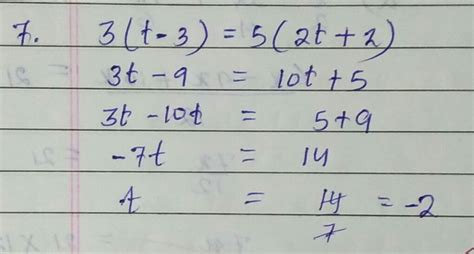 7. 3(t-3) = 5(2t+2)
3t-9 = 10t+5
3t-10t = 5+9
-7t = 14
t = 14/7 = -2